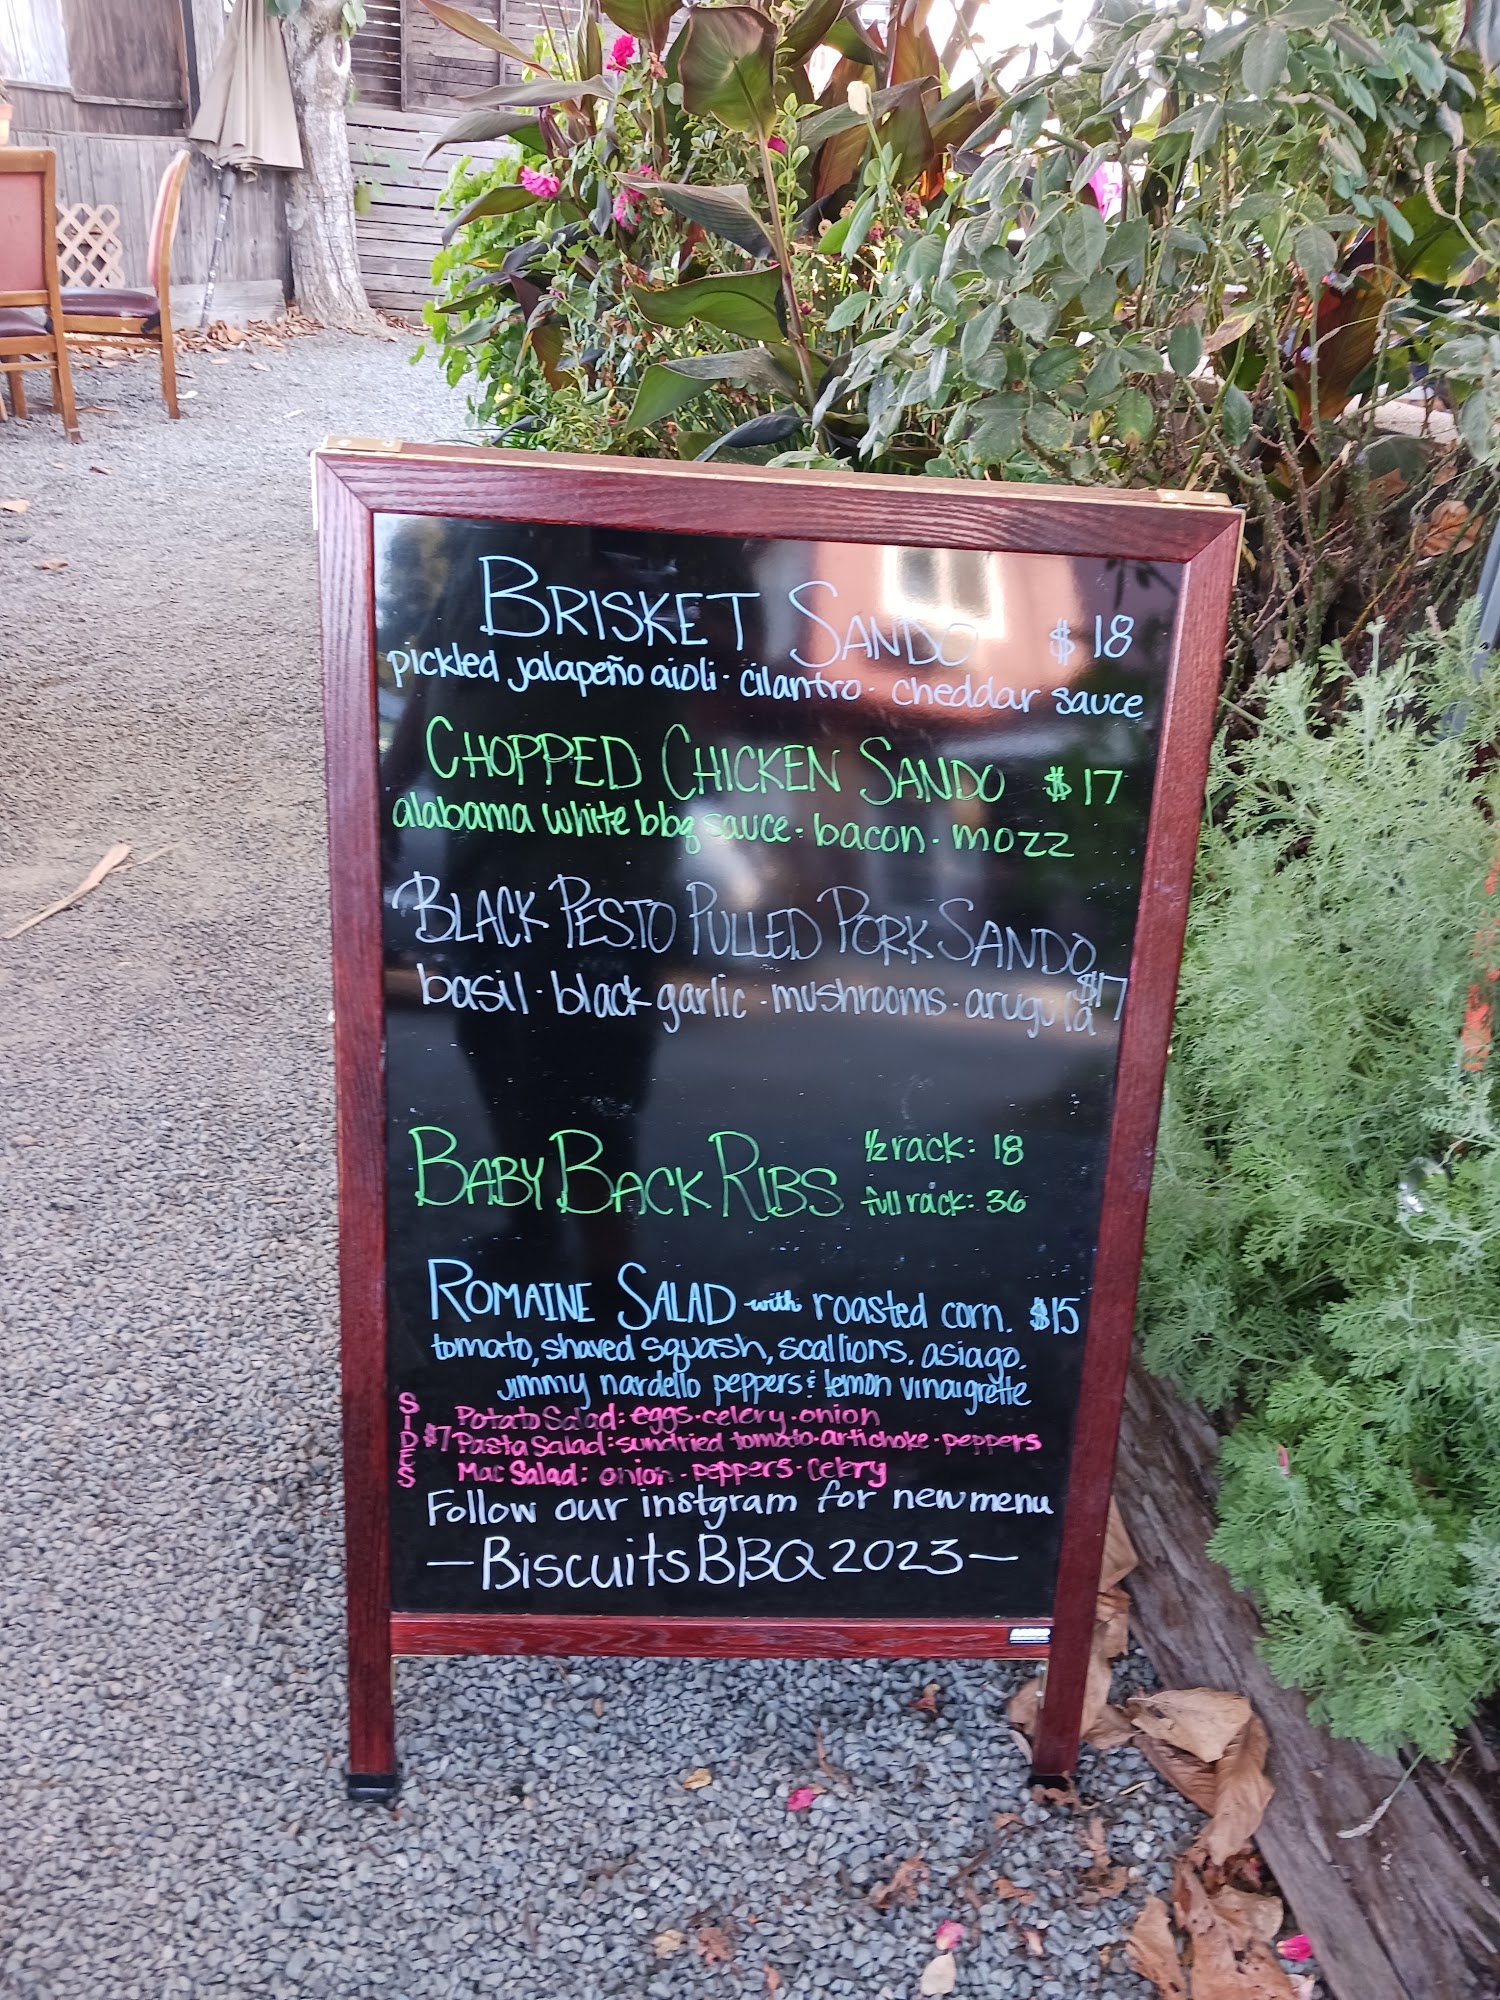 BRISKET SANDO $18
pickled jalapeño aioli · cilantro · cheddar sauce
CHOPPED CHICKEN SANDO $17
alabama white bbq sauce · bacon · mozz
BLACK PESTO PULLED PORK SANDO
basil · black garlic · mushrooms · arugula $17
BABY BACK RIBS
½ rack: 18
full rack: 36
ROMAINE SALAD with roasted corn, $15
tomato, shaved squash, scallions, asiago,
jimmy nardello peppers & lemon vinaigrette
SIDES
$7
Potato Salad: eggs · celery · onion
Pasta Salad: sundried tomato · artichoke · peppers
Mac Salad: onion · peppers · celery
Follow our instgram for new menu
— BiscuitsBBQ2023 —